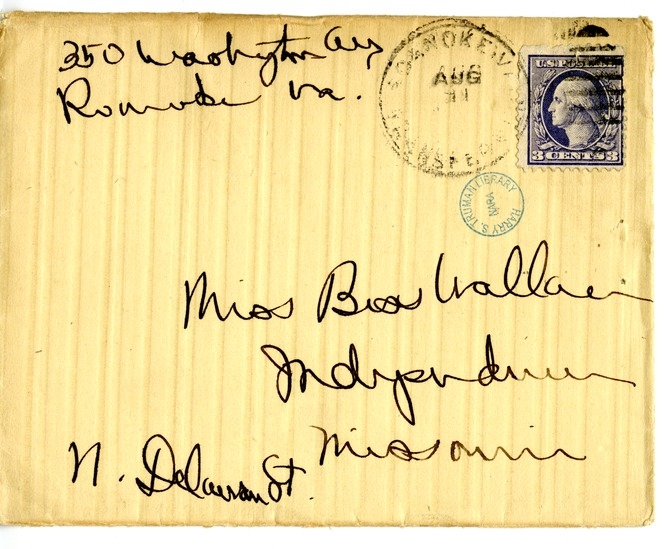 350 Washington Av
Roanoke Va.
ROANOKE, VA.
AUG
11
U.S. POSTAGE
3 CENTS 3
HARRY S. TRUMAN LIBRARY
NARA
Miss Bess Wallace
Independence
Missouri
N. Delaware St.